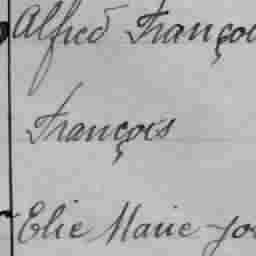 Alfred François
François
Elie Marie Jo